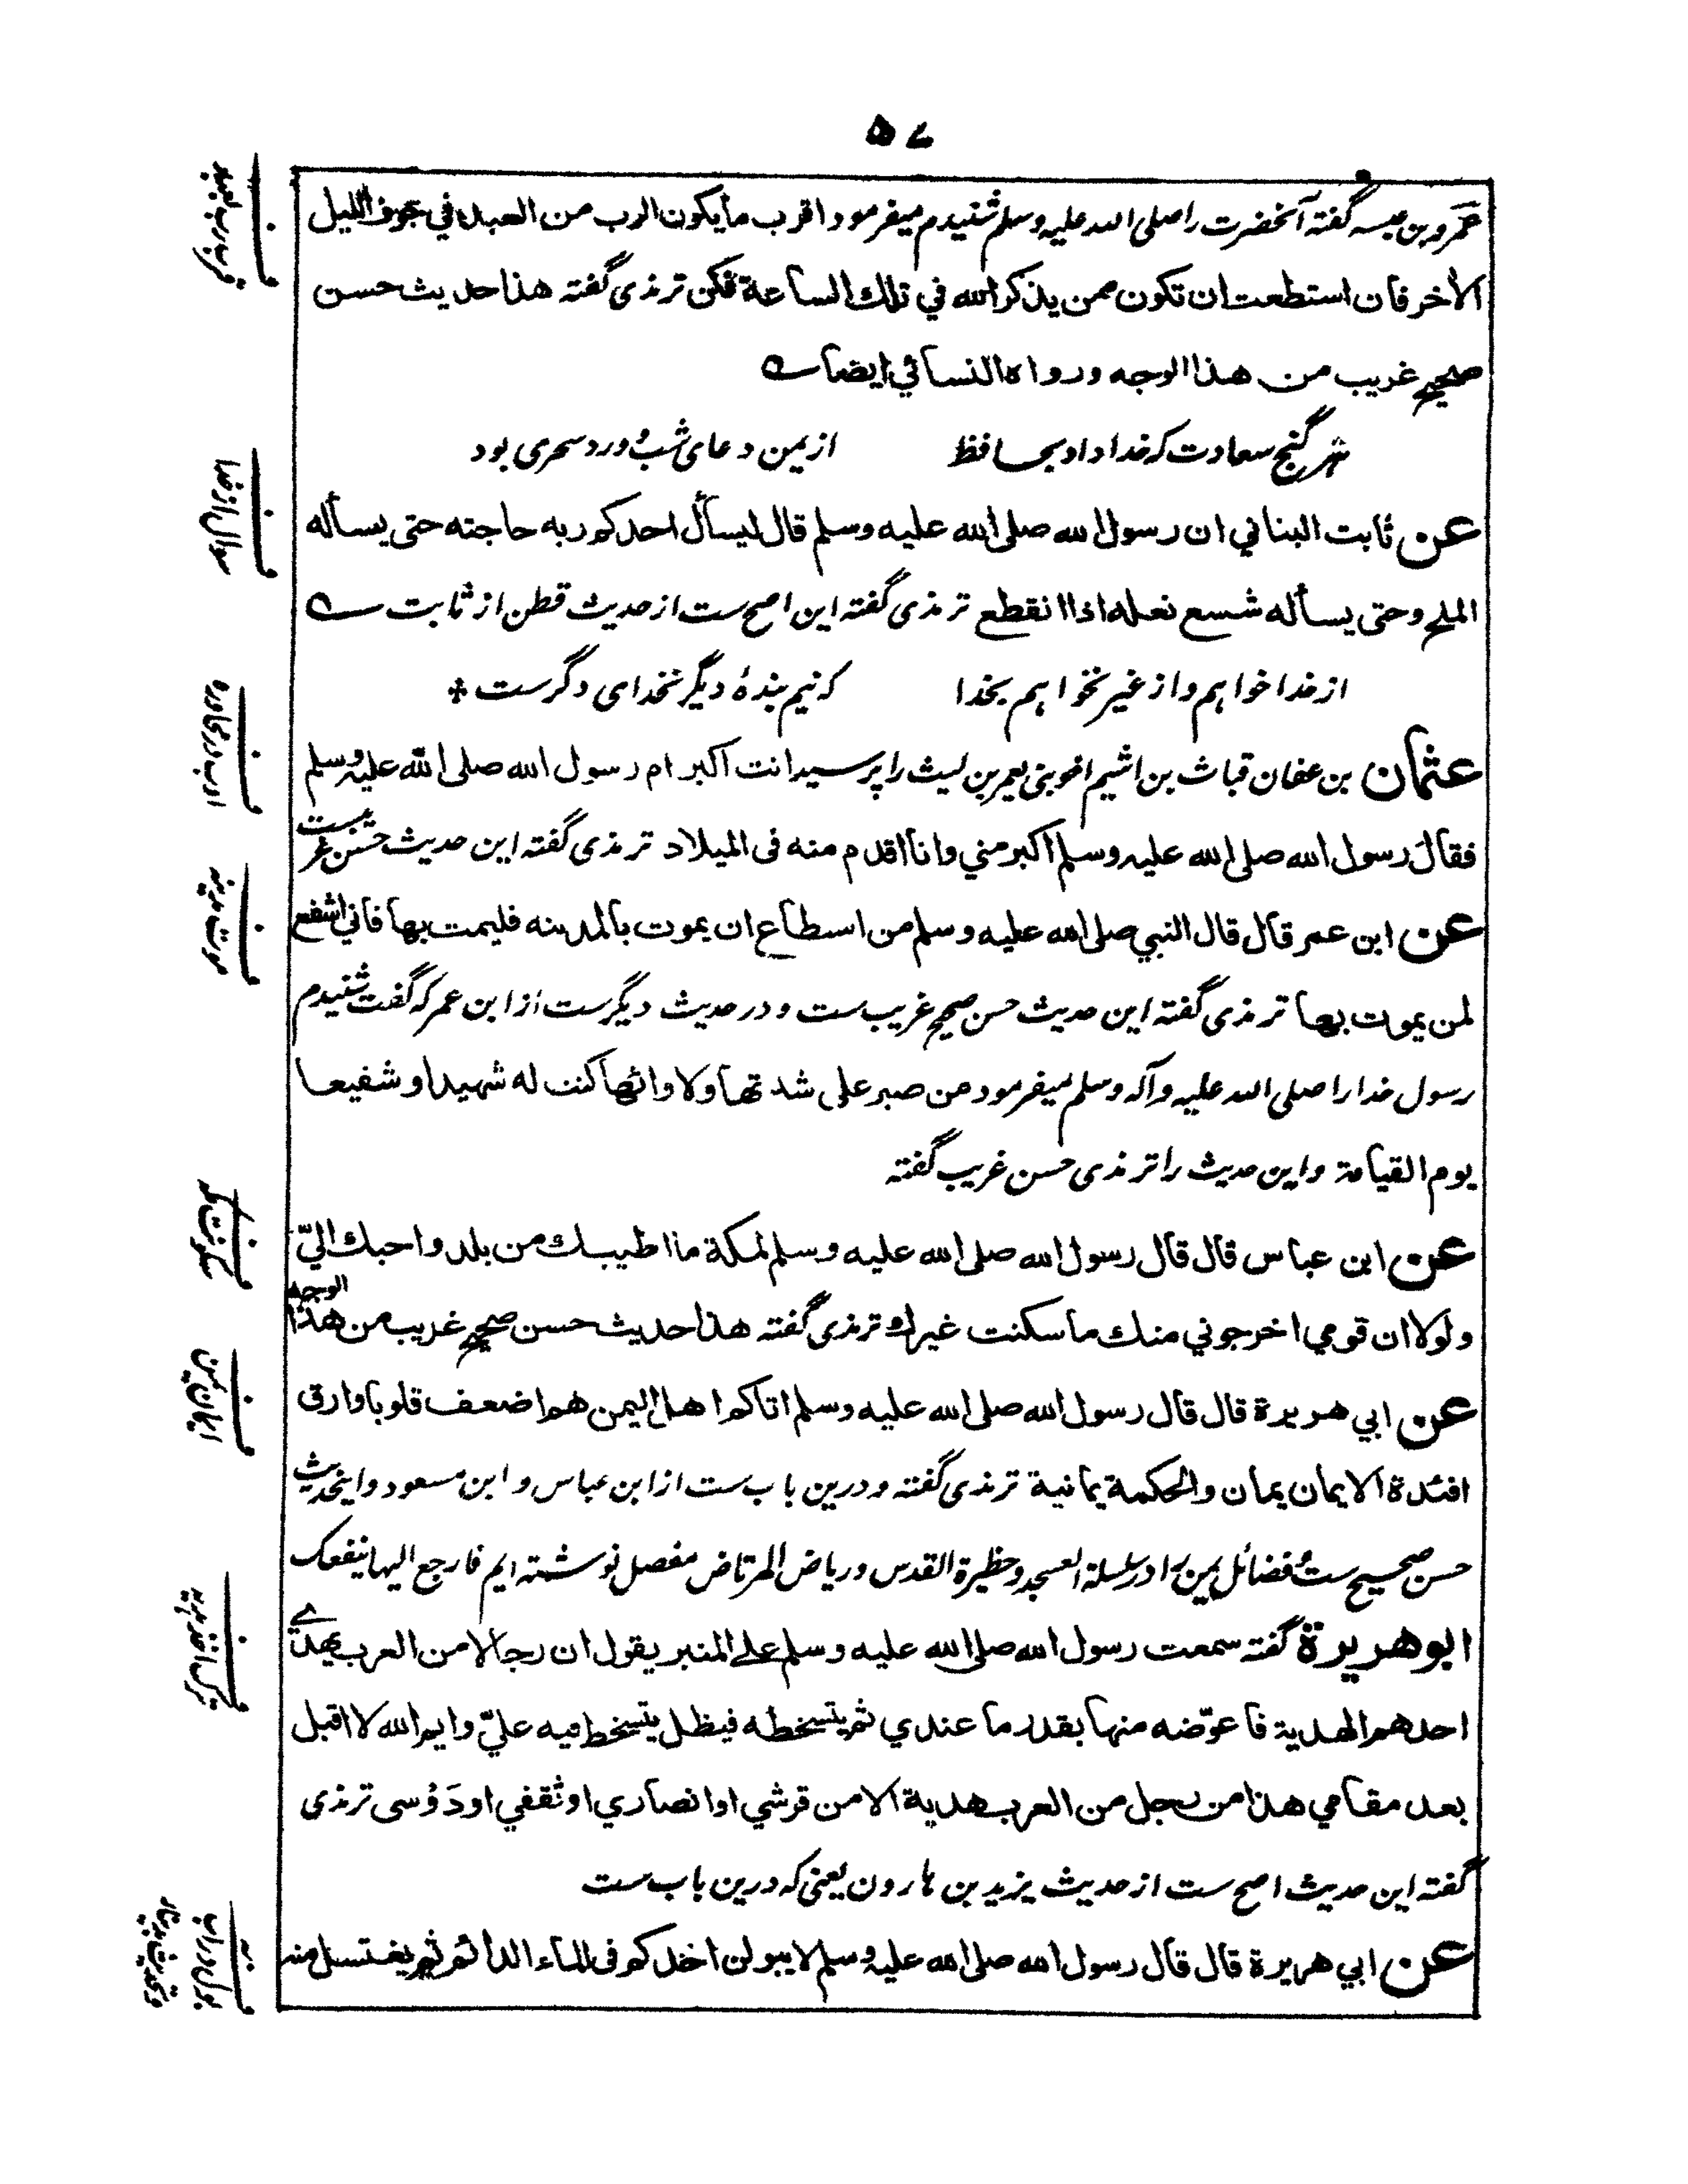 ۵۷
عمرو بن عبسه گفته آنحضرت را صلی الله علیه وسلم شنیدم میفرمود اقرب ما يكون الرب من العبد في جوف الليل
الأخر فان استطعت ان تكون ممن يذكر الله في تلك الساعة فكن ترمذی گفته هذا حديث حسن
صحيح غريب من هذا الوجه ورواه النسائي ايضا
هر گنج سعادت که خدا داد بحافظ از یمن دعای شب و ورد سحری بود
عن ثابت البناني ان رسول الله صلى الله عليه وسلم قال ليسأل احدكم ربه حاجته حتى يسأله
الملح وحتى يسأله شسع نعله اذا انقطع ترمذی گفته این اصح ست از حدیث قطن از ثابت
از خدا خواهم و از غیر نخواهم بخدا که نیم بندهٔ دیگر نه خدای دگرست
عثمان بن عفان قباث بن اشیم اخو بنی یعمر بن لیث را پرسید انت اكبر ام رسول الله صلى الله عليه وسلم
فقال رسول الله صلى الله عليه وسلم اكبر مني وانا اقدم منه فى الميلاد ترمذی گفته این حدیث حسن غریبست
عن ابن عمر قال قال النبي صلى الله عليه وسلم من استطاع ان يموت بالمدينه فليمت بها فاني اشفع
لمن يموت بها ترمذی گفته این حدیث حسن صحیح غریب ست و در حدیث دیگرست از ابن عمر که گفت شنیدم
رسول خدا را صلی الله علیه وآله وسلم میفرمود من صبر على شدتها ولاوائها كنت له شهيدا و شفيعا
يوم القيامة و این حدیث را ترمذی حسن غریب گفته
عن ابن عباس قال قال رسول الله صلى الله عليه وسلم لمكة ما اطيبك من بلد واحبك اليّ
ولولا ان قومي اخرجوني منك ما سكنت غيرك و ترمذی گفته هذا حديث حسن صحيح غريب من هذا الوجه
عن ابي هريرة قال قال رسول الله صلى الله عليه وسلم اتاكم اهل اليمن هم اضعف قلوبا وارق
افئدة الايمان يمان والحكمة يمانية ترمذی گفته و درین باب ست از ابن عباس و ابن مسعود و اینحدیث
حسن صحیح ست و فضائل یمن را در سلسلة العسجد و حظیرة القدس و ریاض المرتاض مفصل نوشته ایم فارجع الیها ینفعک
ابوهريرة گفته سمعت رسول الله صلى الله عليه وسلم على المنبر يقول ان رجالا من العرب يهدے
احدهم الهدية فاعوّضه منها بقدر ما عندي ثم يتسخطه فيظل يتسخط فيه عليّ وايم الله لا اقبل
بعد مقامي هذا من رجل من العرب هدية الا من قرشي او انصاري او ثقفي او دَوْسى ترمذی
گفته این حدیث اصح ست از حدیث یزید بن هارون یعنی که درین باب ست
عن ابي هريرة قال قال رسول الله صلى الله عليه وسلم لا يبولن احدكم فى الماء الدائم ثم يغتسل منه
ف
قرب رب بعبد
ف
سوال از خدا
ف
ادب در محاوره
ف
موت مدینه
ف
سکونت مکه
ف
ایمان یمن
ف